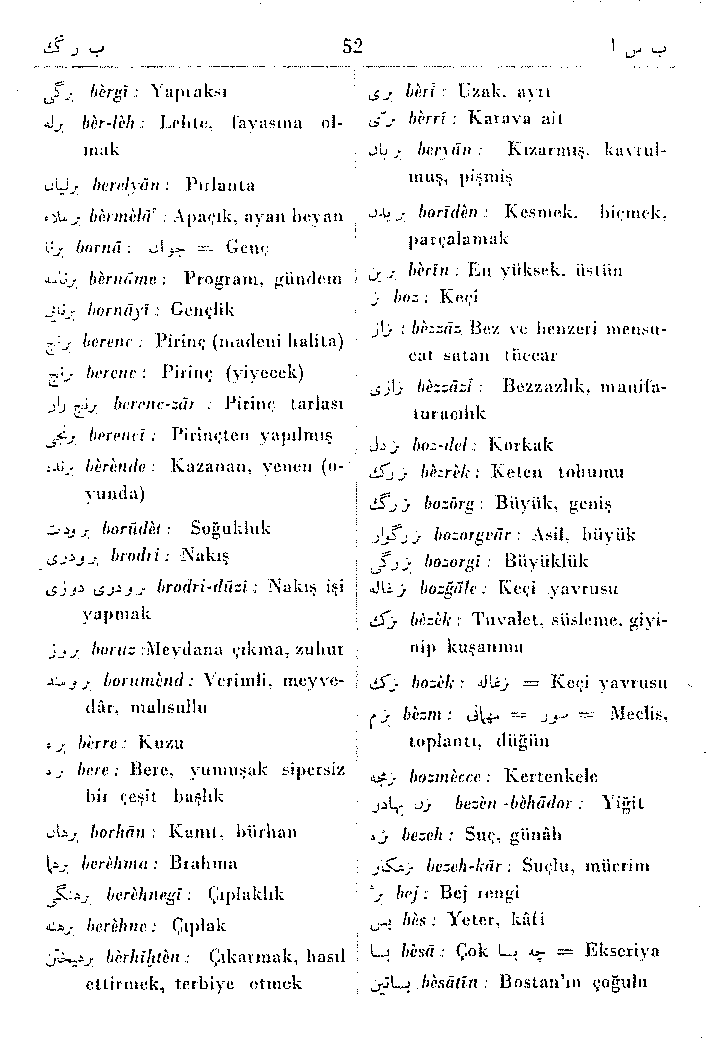 ب ر گ 52 ب س ا
برگی bèrgī : Yapraksı
برله bèr-lèh : Lehte, fayasına ol-
mak
برلیان berelyān : Pırlanta
برملاء bèrmèlā' : Apaçık, ayan beyan
برنا bornā : جوان = Genç
برنامه bèrnāme : Program, gündem
برنائی bornāyī : Gençlik
برنج berenc : Pirinç (madeni halita)
برنج berenc : Pirinç (yiyecek)
برنج زار berenc-zār : Pirinç tarlası
برنجی berencī : Pirinçten yapılmış
برنده bèrènde : Kazanan, yenen (o-
yunda)
برودت borūdèt : Soğukluk
برودری brodri : Nakış
برودری دوزی brodri-dūzi : Nakış işi
yapmak
بروز boruz :Meydana çıkma, zuhur
برومند borumènd : Verimli, meyve-
dâr, mahsullu
بره bèrre : Kuzu
بره bere : Bere, yumuşak sipersiz
bir çeşit başlık
برهان borhān : Kanıt, bürhan
برهما berèhma : Brahma
برهنگی berèhnegī : Çıplaklık
برهنه berèhne : Çıplak
برهیختن bèrhīḫtèn : Çıkarmak, hasıl
ettirmek, terbiye etmek
بری bèrī : Uzak, ayrı
برّی bèrrī : Karaya ait
بریان beryān : Kızarmış, kavrul-
muş, pişmiş
بریدن borīdèn : Kesmek, biçmek,
parçalamak
برین bèrīn : En yüksek, üstün
بز boz : Keçi
بزاز : bèzzāz Bez ve benzeri mensu-
cat satan tüccar
بزازی bèzzāzī : Bezzazlık, manifa-
turacılık
بزدل boz-del : Korkak
بزرک bèzrèk : Keten tohumu
بزرگ bozōrg : Büyük, geniş
بزرگوار bozorgvār : Asil, büyük
بزرگی bozorgi : Büyüklük
بزغاله bozğāle : Keçi yavrusu
بزک bèzèk : Tuvalet, süsleme, giyi-
nip kuşanma
بزک bozèk : بزغاله = Keçi yavrusu
بزم bèzm : مهمانی = سور = Meclis,
toplantı, düğün
بزمجه bozmècce : Kertenkele
بزن بهادر bezèn -bèhādor : Yiğit
بزه bezeh : Suç, günâh
بزهکار bezeh-kār : Suçlu, mücrim
بژ bej : Bej rengi
بس bès : Yeter, kâfi
بسا bèsā : Çok چه بسا = Ekseriya
بساتین bèsātīn : Bostan'ın çoğulu